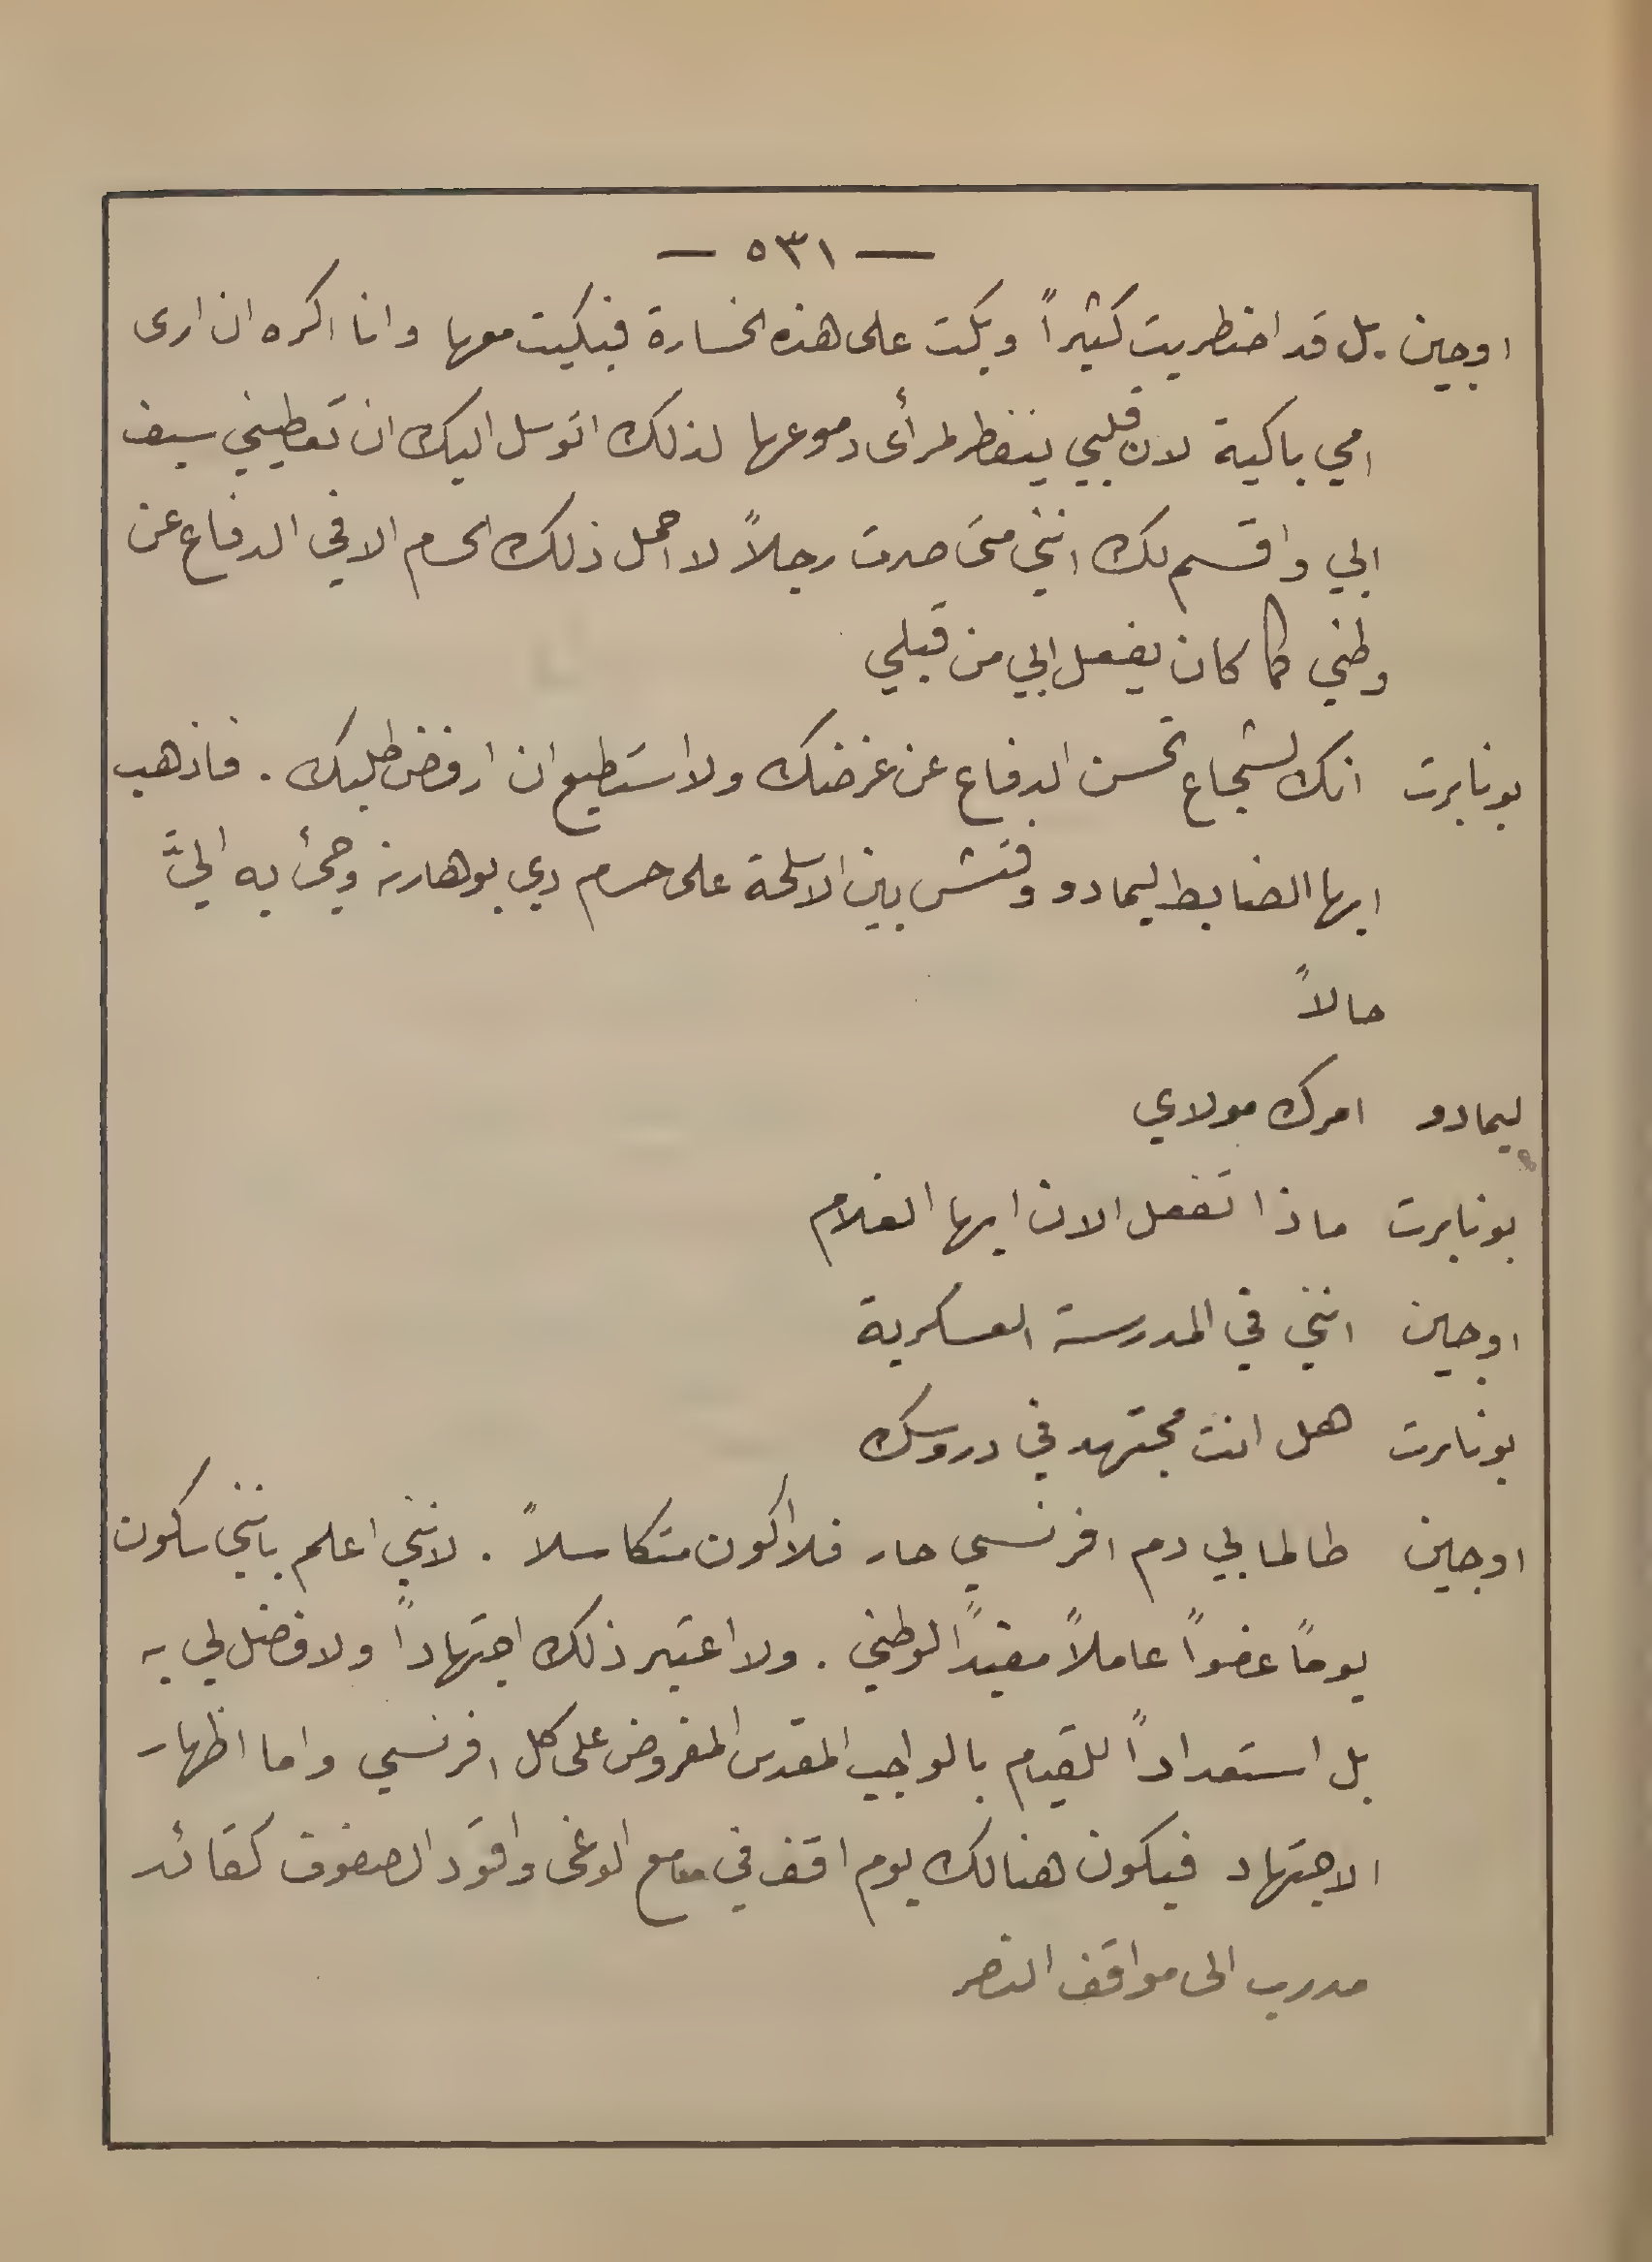 — ٥٣١ —
اوجين . بل قد اضطربت كثيراً وبكت على هذه الخسارة فبكيت معها وانا اكره ان ارى
امي باكية لان قلبي ينفطر لمرأى دموعها لذلك اتوسل اليك ان تعطيني سيف
ابي واقسم لك انني متى صرت رجلاً لا احمل ذلك الحسام الا في الدفاع عن
وطني كما كان يفعل ابي من قبلي
بونابرت انك لشجاع تحسن الدفاع عن غرضك ولا استطيع ان ارفض طلبك . فاذهب
ايها الضابط ليمادو وفتش بين الاسلحة على حسام دي بوهارنه وجئ به اليَّ
حالاً
ليمادو امرك مولاي
بونابرت ماذا تفعل الان ايها الغلام
اوجين انني في المدرسة العسكرية
بونابرت هل انت مجتهد في دروسك
اوجين طالما بي دم افرنسي حار فلا اكون متكاسلاً . لانني اعلم بانني ساكون
يوماً عضواً عاملاً مفيداً لوطني . ولا اعتبر ذلك اجتهاداً ولا فضل لي به
بل استعداداً للقيام بالواجب المقدس المفروض على كل افرنسي واما اظهار
الاجتهاد فيكون هنالك يوم اقف في الوغى واقود الصفوف كقائد
مدرب الى مواقف النصر